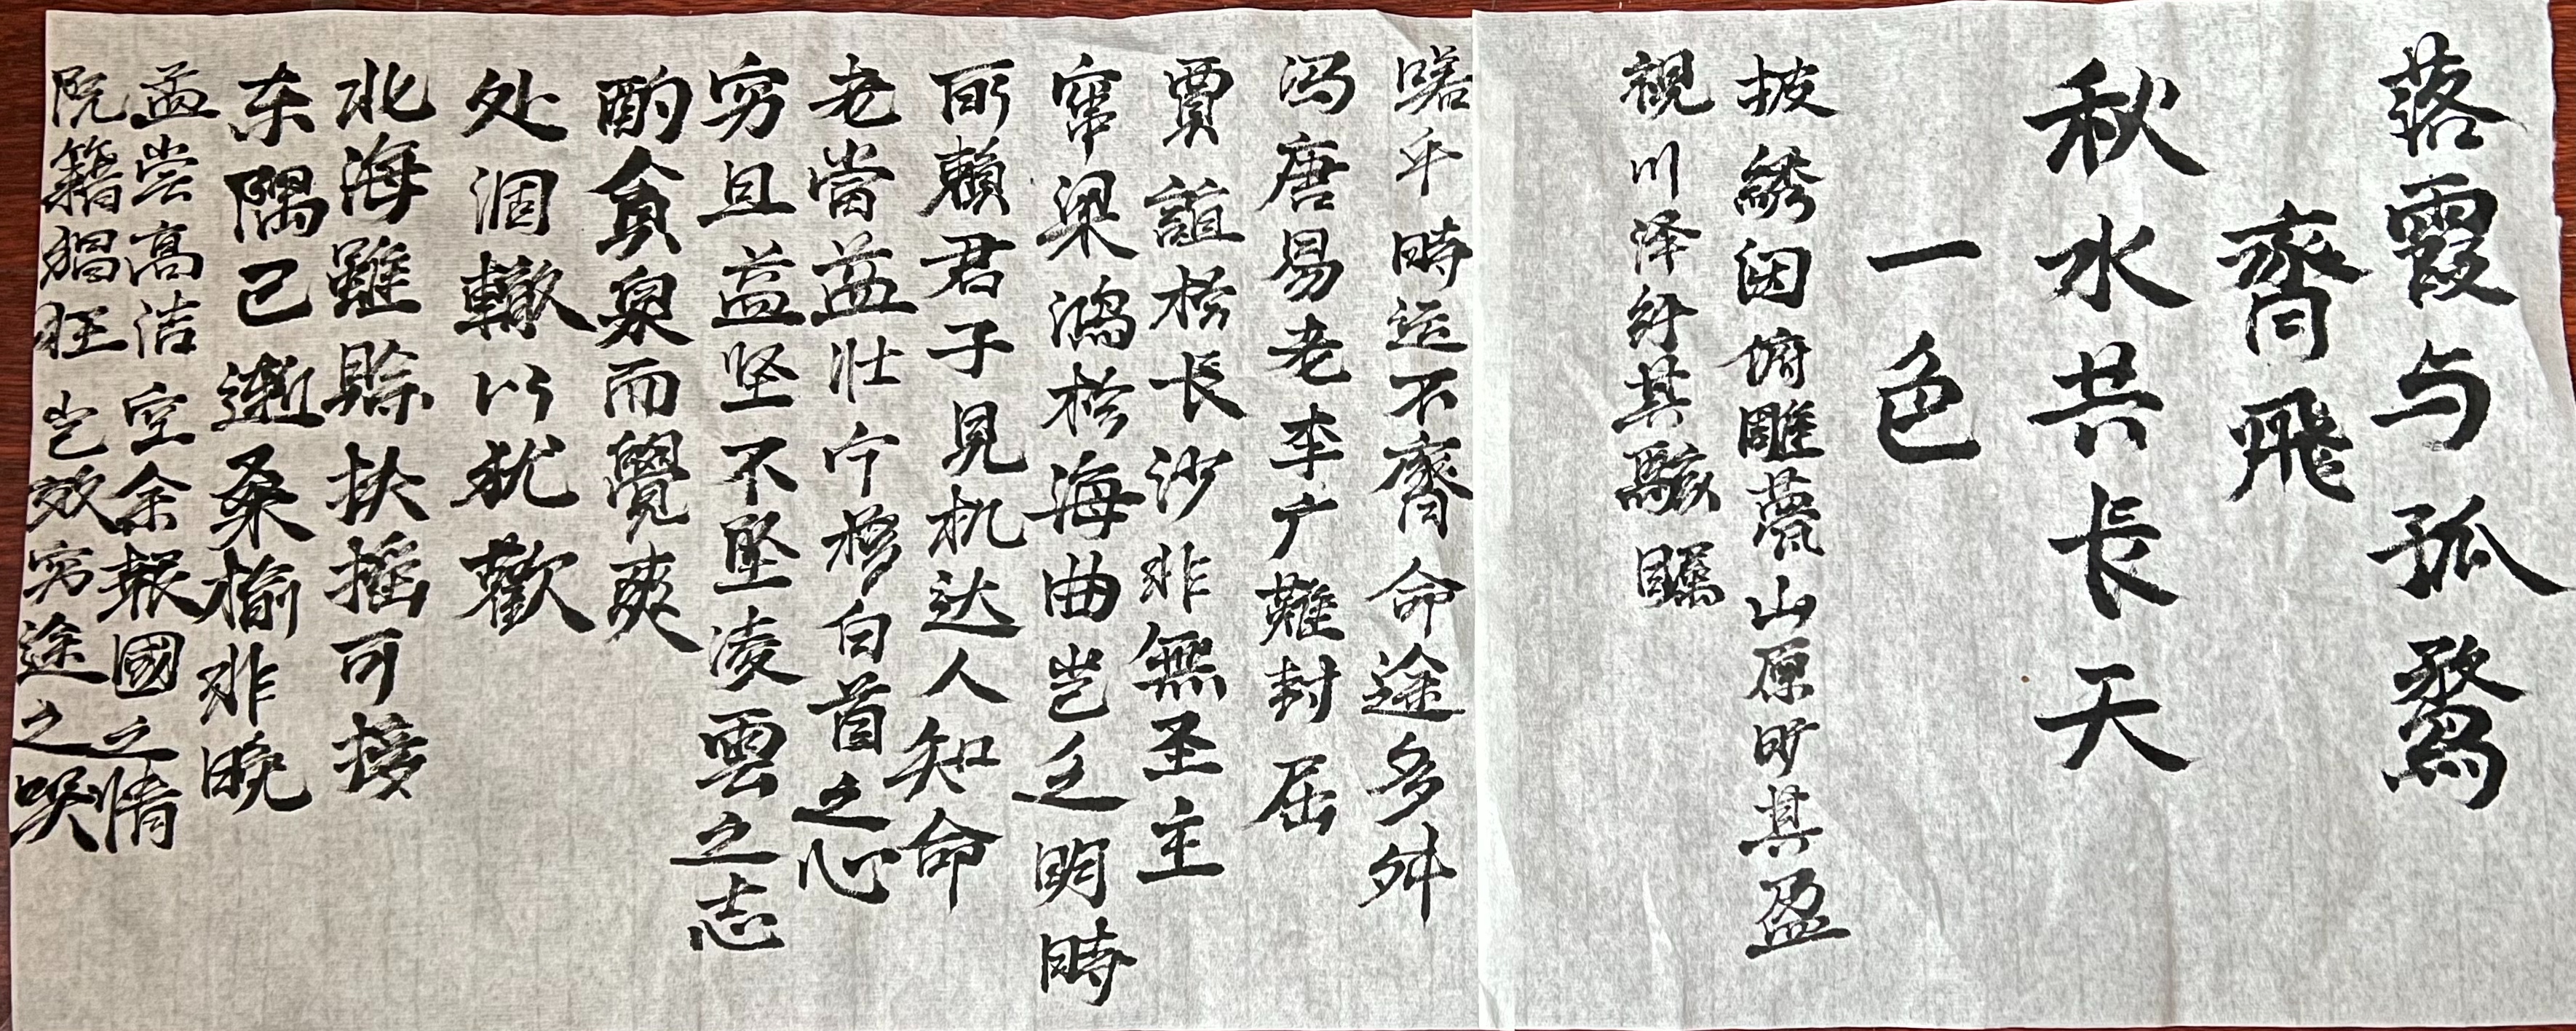 落霞与孤鶩
齊飛
秋水共長天
一色
披綉闼俯雕甍山原旷其盈
視川泽紆其駭矚
嗟乎時运不齊命途多舛
冯唐易老李广難封屈
賈誼於長沙非無圣主
竄梁鴻於海曲岂乏明時
所賴君子見机达人知命
老當益壮宁移白首之心
穷且益坚不坠凌雲之志
酌貪泉而覺爽
处涸轍以犹歡
北海雖賒扶摇可接
东隅已逝桑榆非晚
孟尝高洁空余報國之情
阮籍猖狂岂效穷途之哭